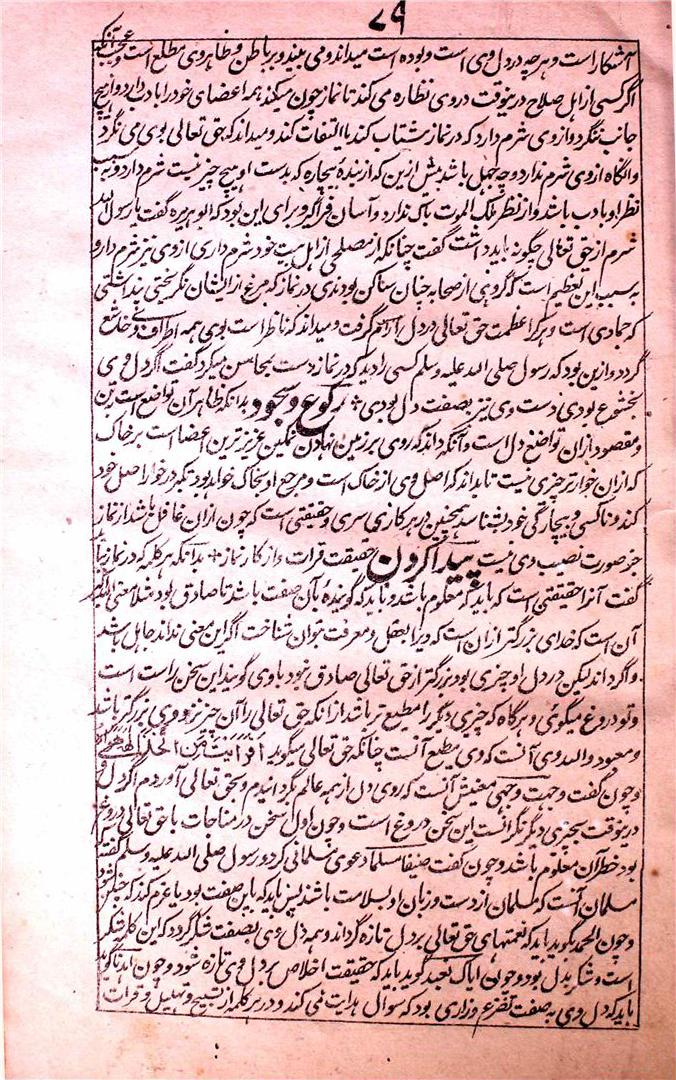 ۷۹
آشکار است و هر چه در دل وی است و بوده است میداند و می بیند و بر باطن و ظاهر وی مطلع است و عجب آنکه
اگر کسی از اهل صلاح درینوقت در وی نظاره می کند تا نماز چون میکند همه اعضای خود را بادب دارد و از هیچ
جانب ننگرد و از وی شرم دارد که در نماز شتاب کند یا التفات کند و میداند که حق تعالی بوی می نگرد
و آنگاه از وی شرم ندارد و چه جهل باشد بیش ازین که از بندهٔ بیچاره که بدست او هیچ چیز نیست شرم دارد و بسبب
نظر او بادب باشد و از نظر ملک الموت باک ندارد و آسان فراگیرد و برای این بود که ابوهریره گفت یا رسول الله
شرم از حق تعالی چگونه باید داشت گفت چنانکه از مصلحی از اهل بیت خود شرم داری از وی نیز شرم دار و
بسبب این تعظیم است که گروهی از صحابه چنان ساکن بودندی در نماز که مرغ از ایشان نگریختی پنداشتی
که جمادی است و هر کرا عظمت حق تعالی در دل آرام گرفت و میداند که ناظر است بوی همه اطراف وی خاشع
گردد و ازین بود که رسول صلی الله علیه و سلم کسی را دید که در نماز دست بمحاسن میکرد گفت اگر دل وی
بخشوع بودی دست وی نیز بصفت دل بودی * رکوع و سجود بدانکه ظاهر آن تواضع است بتن
و مقصود ازان تواضع دل است و آنکه داند که روی بر زمین نهادن تمکین عزیزترین اعضا است بر خاک
که ازان خوارتر چیزی نیست تا بداند که اصل وی از خاک است و مرجع او بخاک خواهد بود تکبر در خور اصل خود
کند و ناکسی و بیچارگی خود بشناسد همچنین در هر کاری سری و حقیقتی است که چون ازان غافل باشد از نماز
جز صورت نصیب وی نیست پیدا کردن حقیقت قرات و اذکار نماز * بدانکه هر کلمه که در نماز بباید
گفت آنرا حقیقتی است که باید که معلوم باشد و باید که گوینده بآن صفت باشد تا صادق بود مثلا معنی الله اکبر
آن است که خدای بزرگتر ازان است که ویرا بعقل و معرفت بتوان شناخت اگر این معنی نداند جاهل باشد
و اگر داند لیکن در دل او چیزی بود بزرگتر از حق تعالی صادق نبود با وی گویند این سخن راست است
و تو دروغ میگوئی و هرگاه که چیزی دیگر را مطیع تر باشد از آنکه حق تعالی را آن چیز نزد وی بزرگتر باشد
و معبود و اله وی آنست که وی مطیع آنست چنانکه حق تعالی میگوید أَفَرَأَيْتَ مَنِ اتَّخَذَ إِلٰهَهُ هَوَاهُ
و چون گفت وجهت وجهی معنیش آنست که روی دل از همه عالم بگردانیدم و بحق تعالی آوردم اگر دل او
درینوقت بچیزی دیگر نگرانست این سخن دروغ است و چون اول سخن در مناجات با حق تعالی دروغ
بود خطر آن معلوم باشد و چون گفت حنیفا مسلما دعوی مسلمانی کرد و رسول صلی الله علیه و سلم گفته
مسلمان آنست که مسلمانان از دست و زبان او بسلامت باشند پس باید که باین صفت بود یا عزم کند که چنین شود
و چون الحمد بگوید باید که نعمتهای حق تعالی بر دل تازه گرداند و همه دل وی بصفت شکر گردد که این کلمه شکر
است و شکر بدل بود و چون ایاک نعبد گوید باید که حقیقت اخلاص بر دل وی تازه شود و چون اهدنا گوید
باید که دل وی بصفت تضرع و زاری بود که سوال هدایت می کند و در هر کلمه از تسبیح و تهلیل و قرات